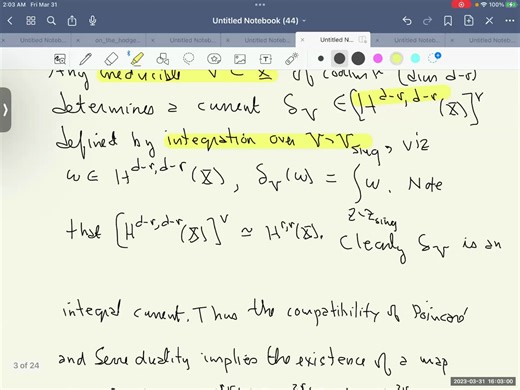 2:03 AM Fri Mar 31
100%
Untitled Notebook (44)
on_the_hodge... Untitled Notebook Untitled Notebook Untitled N... Untitled Notebook Untitled Notebook
Any irreducible V ⊂ X of codim r (dim d-r)
determines a current δ_V ∈ [H^{d-r,d-r}(X)]^∨
defined by integration over V∖V_sing, viz
ω ∈ H^{d-r,d-r}(X), δ_V(ω) = ∫_{Z∖Z_sing} ω. Note
that [H^{d-r,d-r}(X)]^∨ ≃ H^{r,r}(X). Clearly δ_V is an
integral current. Thus the compatibility of Poincaré
3 of 24
and Serre duality implies the existence of a map
2023-03-31 16:03:00